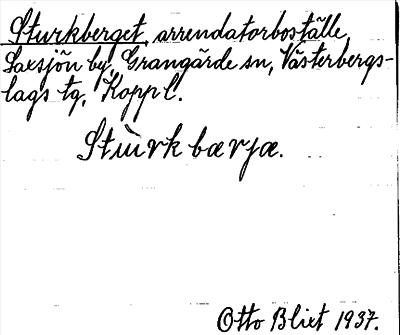 Sturkberget, arrendatorboställe,
Saxsjön by, Grangärde sn, Västerbergs-
lags tg, Kopp l.
Stùrk bærjæ.
Otto Blixt 1937.